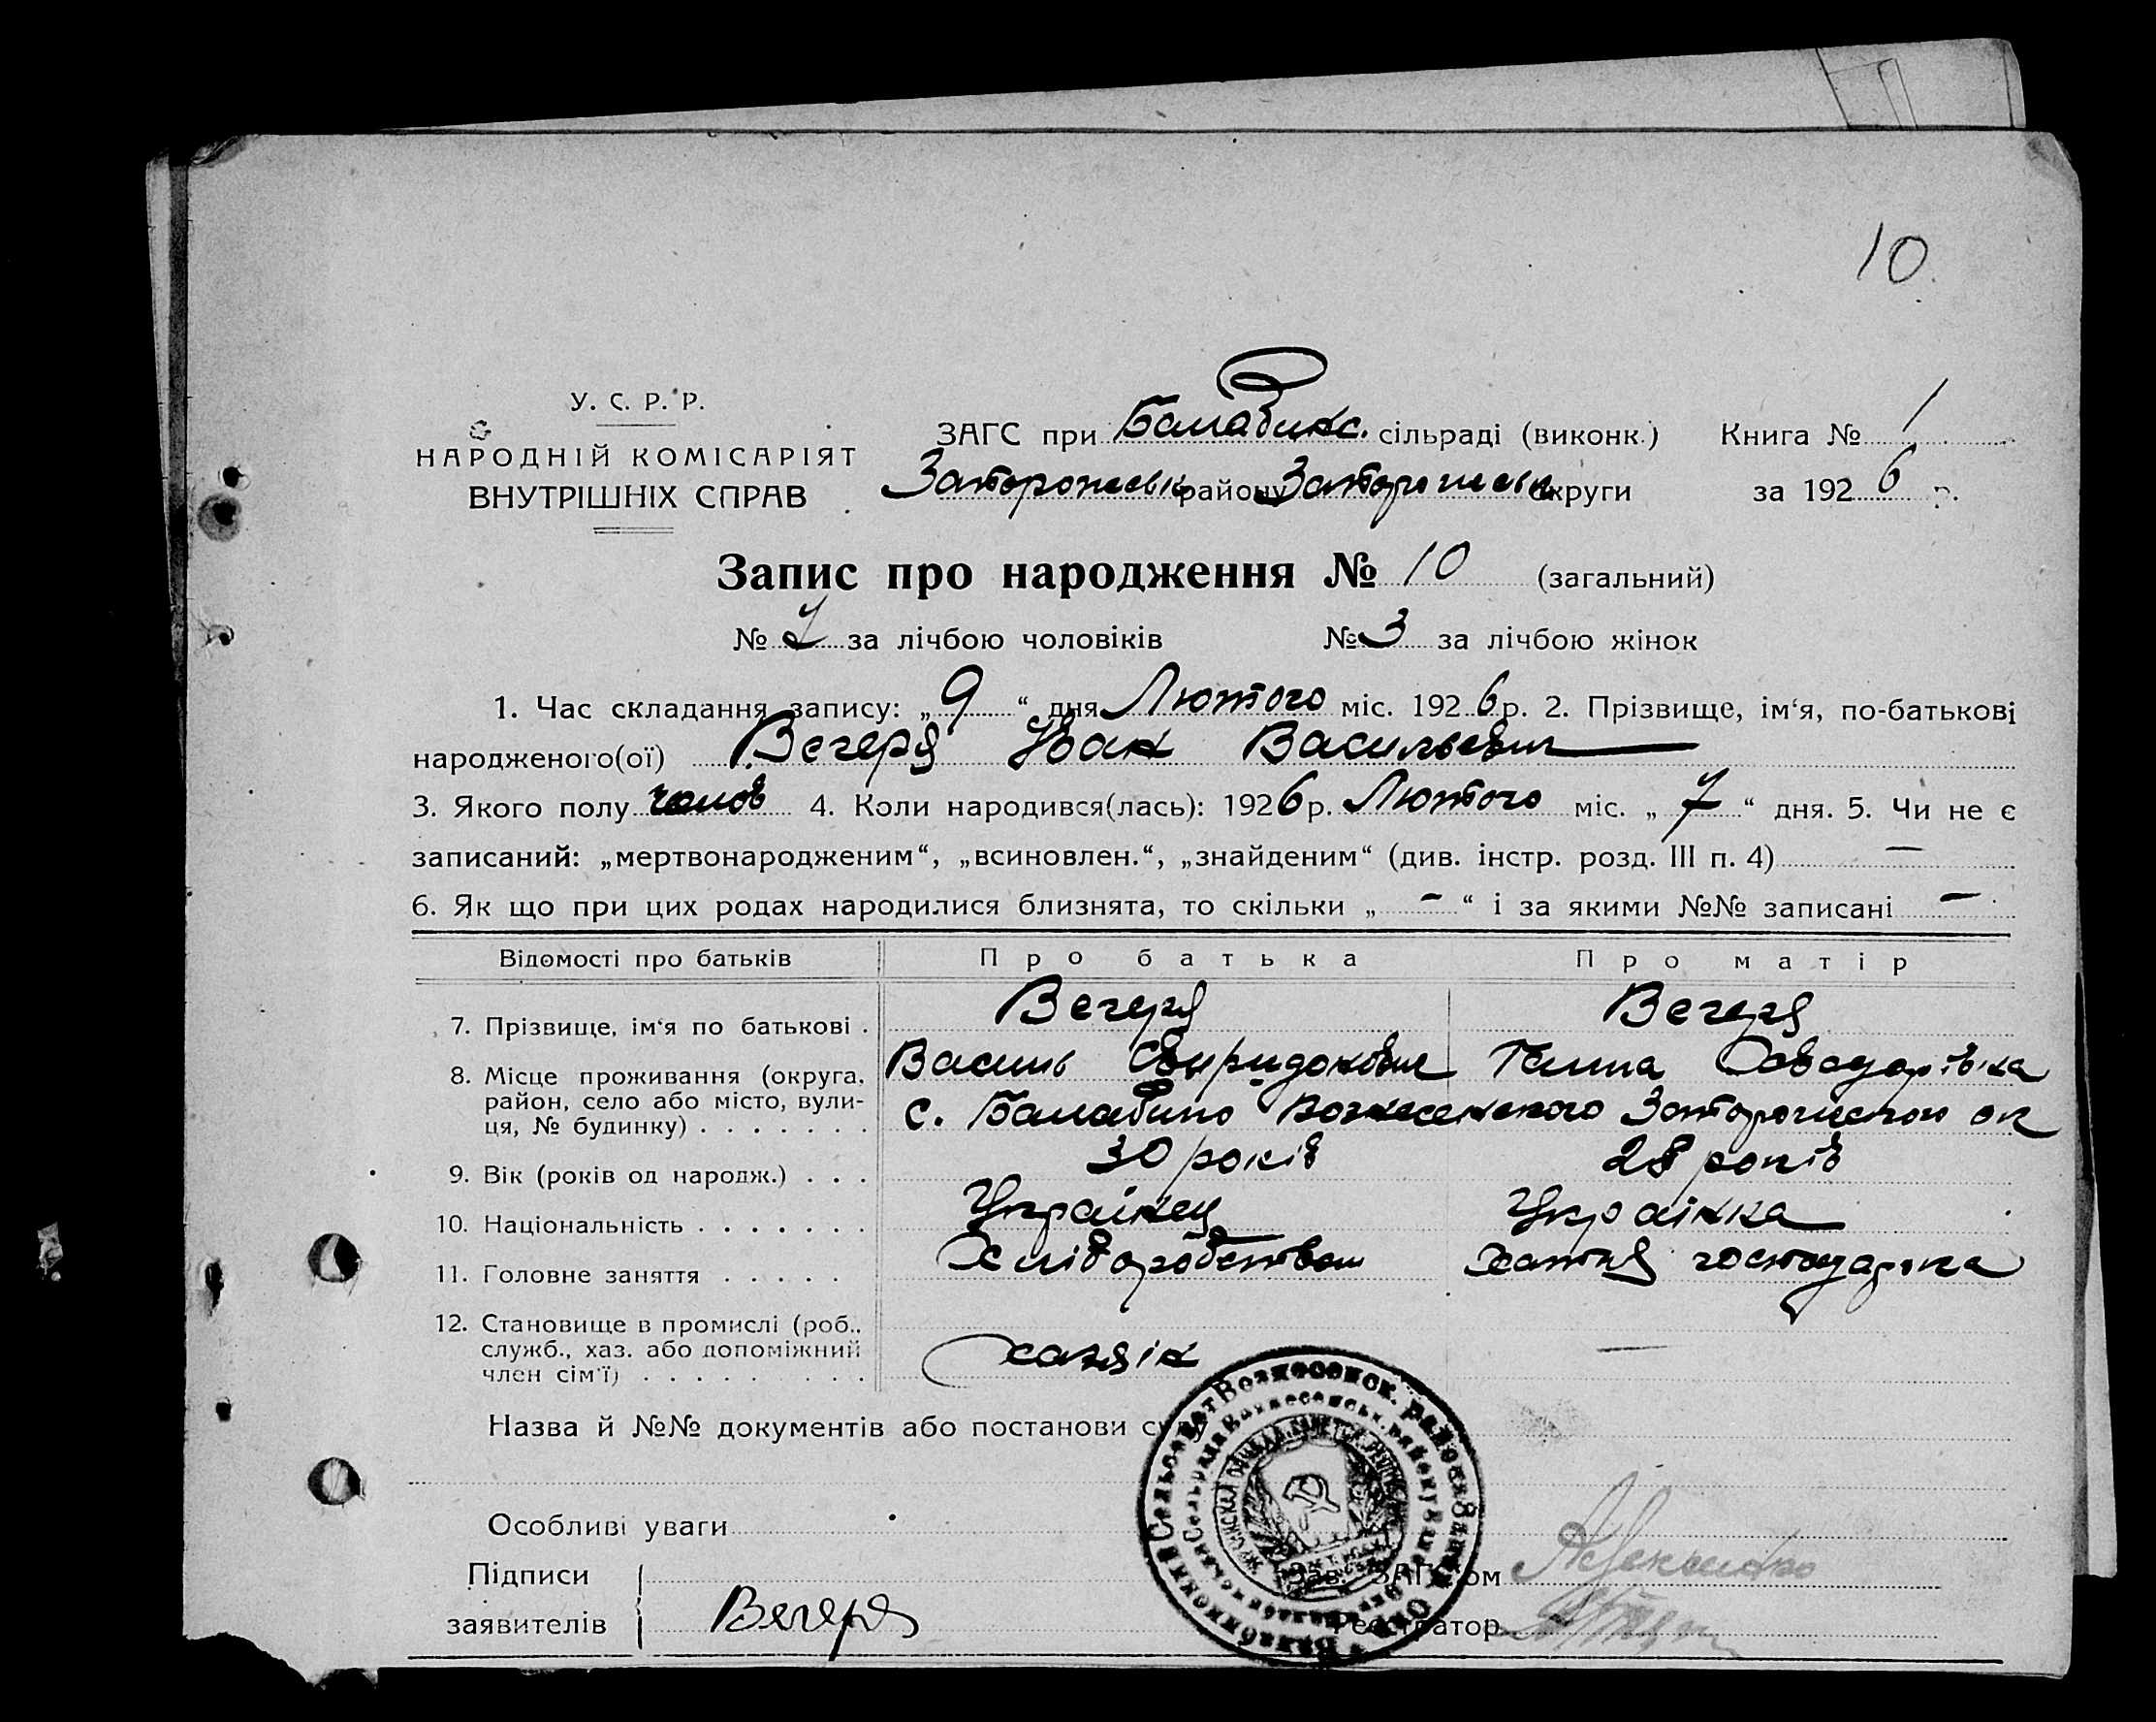 10
У. С. Р. Р.
НАРОДНІЙ КОМІСАРІЯТ
ВНУТРІШНІХ СПРАВ
ЗАГС при Балабинс. сільраді (виконк.) Книга № 1
Запорожськ району Запорожськ округи за 1926 р.
Запис про народження № 10 (загальний)
№ 7 за лічбою чоловіків № 3 за лічбою жінок
1. Час складання запису: „9“ дня Лютого міс. 1926 р. 2. Прізвище, ім‘я, по-батькові
народженого(ої) Вечеря Іван Васильевич
3. Якого полу чолов 4. Коли народився(лась): 1926 р. Лютого міс. „7“ дня. 5. Чи не є
записаний: „мертвонародженим“, „всиновлен.“, „знайденим“ (див. інстр. розд. III п. 4) —
6. Як що при цих родах народилися близнята, то скільки „ - “ і за якими №№ записані -
Відомості про батьків Про батька Про матір
7. Прізвище, ім‘я по батькові . Вечеря Вечеря
Василь Свиридонович Ганна
8. Місце проживання (округа, район, село або місто, вулиця, № будинку) . . . . . . . с. Балабино Вознесенського Запорожського ок
9. Вік (років од народж.) . . . 30 років 28 років
10. Національність . . . . . . . Українец Українка
11. Головне заняття . . . . . Хліборобством хатня господарка
12. Становище в промислі (роб., служб., хаз. або допоміжний член сім‘ї) . . . . . . . . . хазяін —
Назва й №№ документів або постанови суду
Особливі уваги
Підписи
заявителів Вечеря
Зав. ЗАГС‘ом
Реєстратор